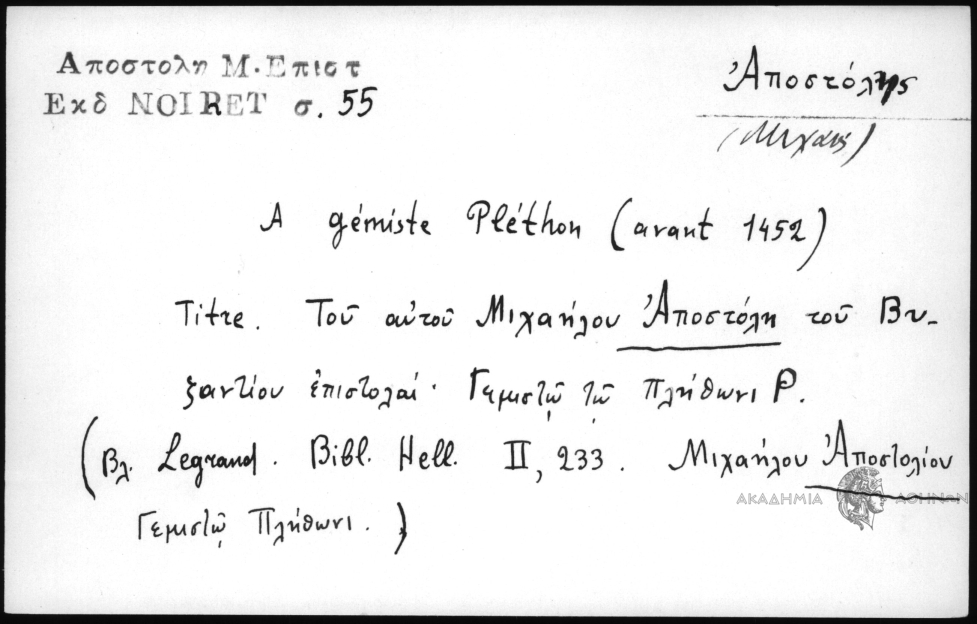 Αποστολη Μ. Επιστ
Εκδ NOIRET σ. 55
Ἀποστόλης
(Μιχαήλ)
A gémiste Pléthon (avant 1452)
Titre. Τοῦ αὐτοῦ Μιχαήλου Ἀποστόλη τοῦ Βυ-
ζαντίου ἐπιστολαί· Γεμιστῷ τῷ Πλήθωνι P.
(Βλ. Legrand. Bibl. Hell. II, 233. Μιχαήλου Ἀποστολίου
Γεμιστῷ Πλήθωνι.)
ΑΚΑΔΗΜΙΑ ΑΘΗΝΩΝ